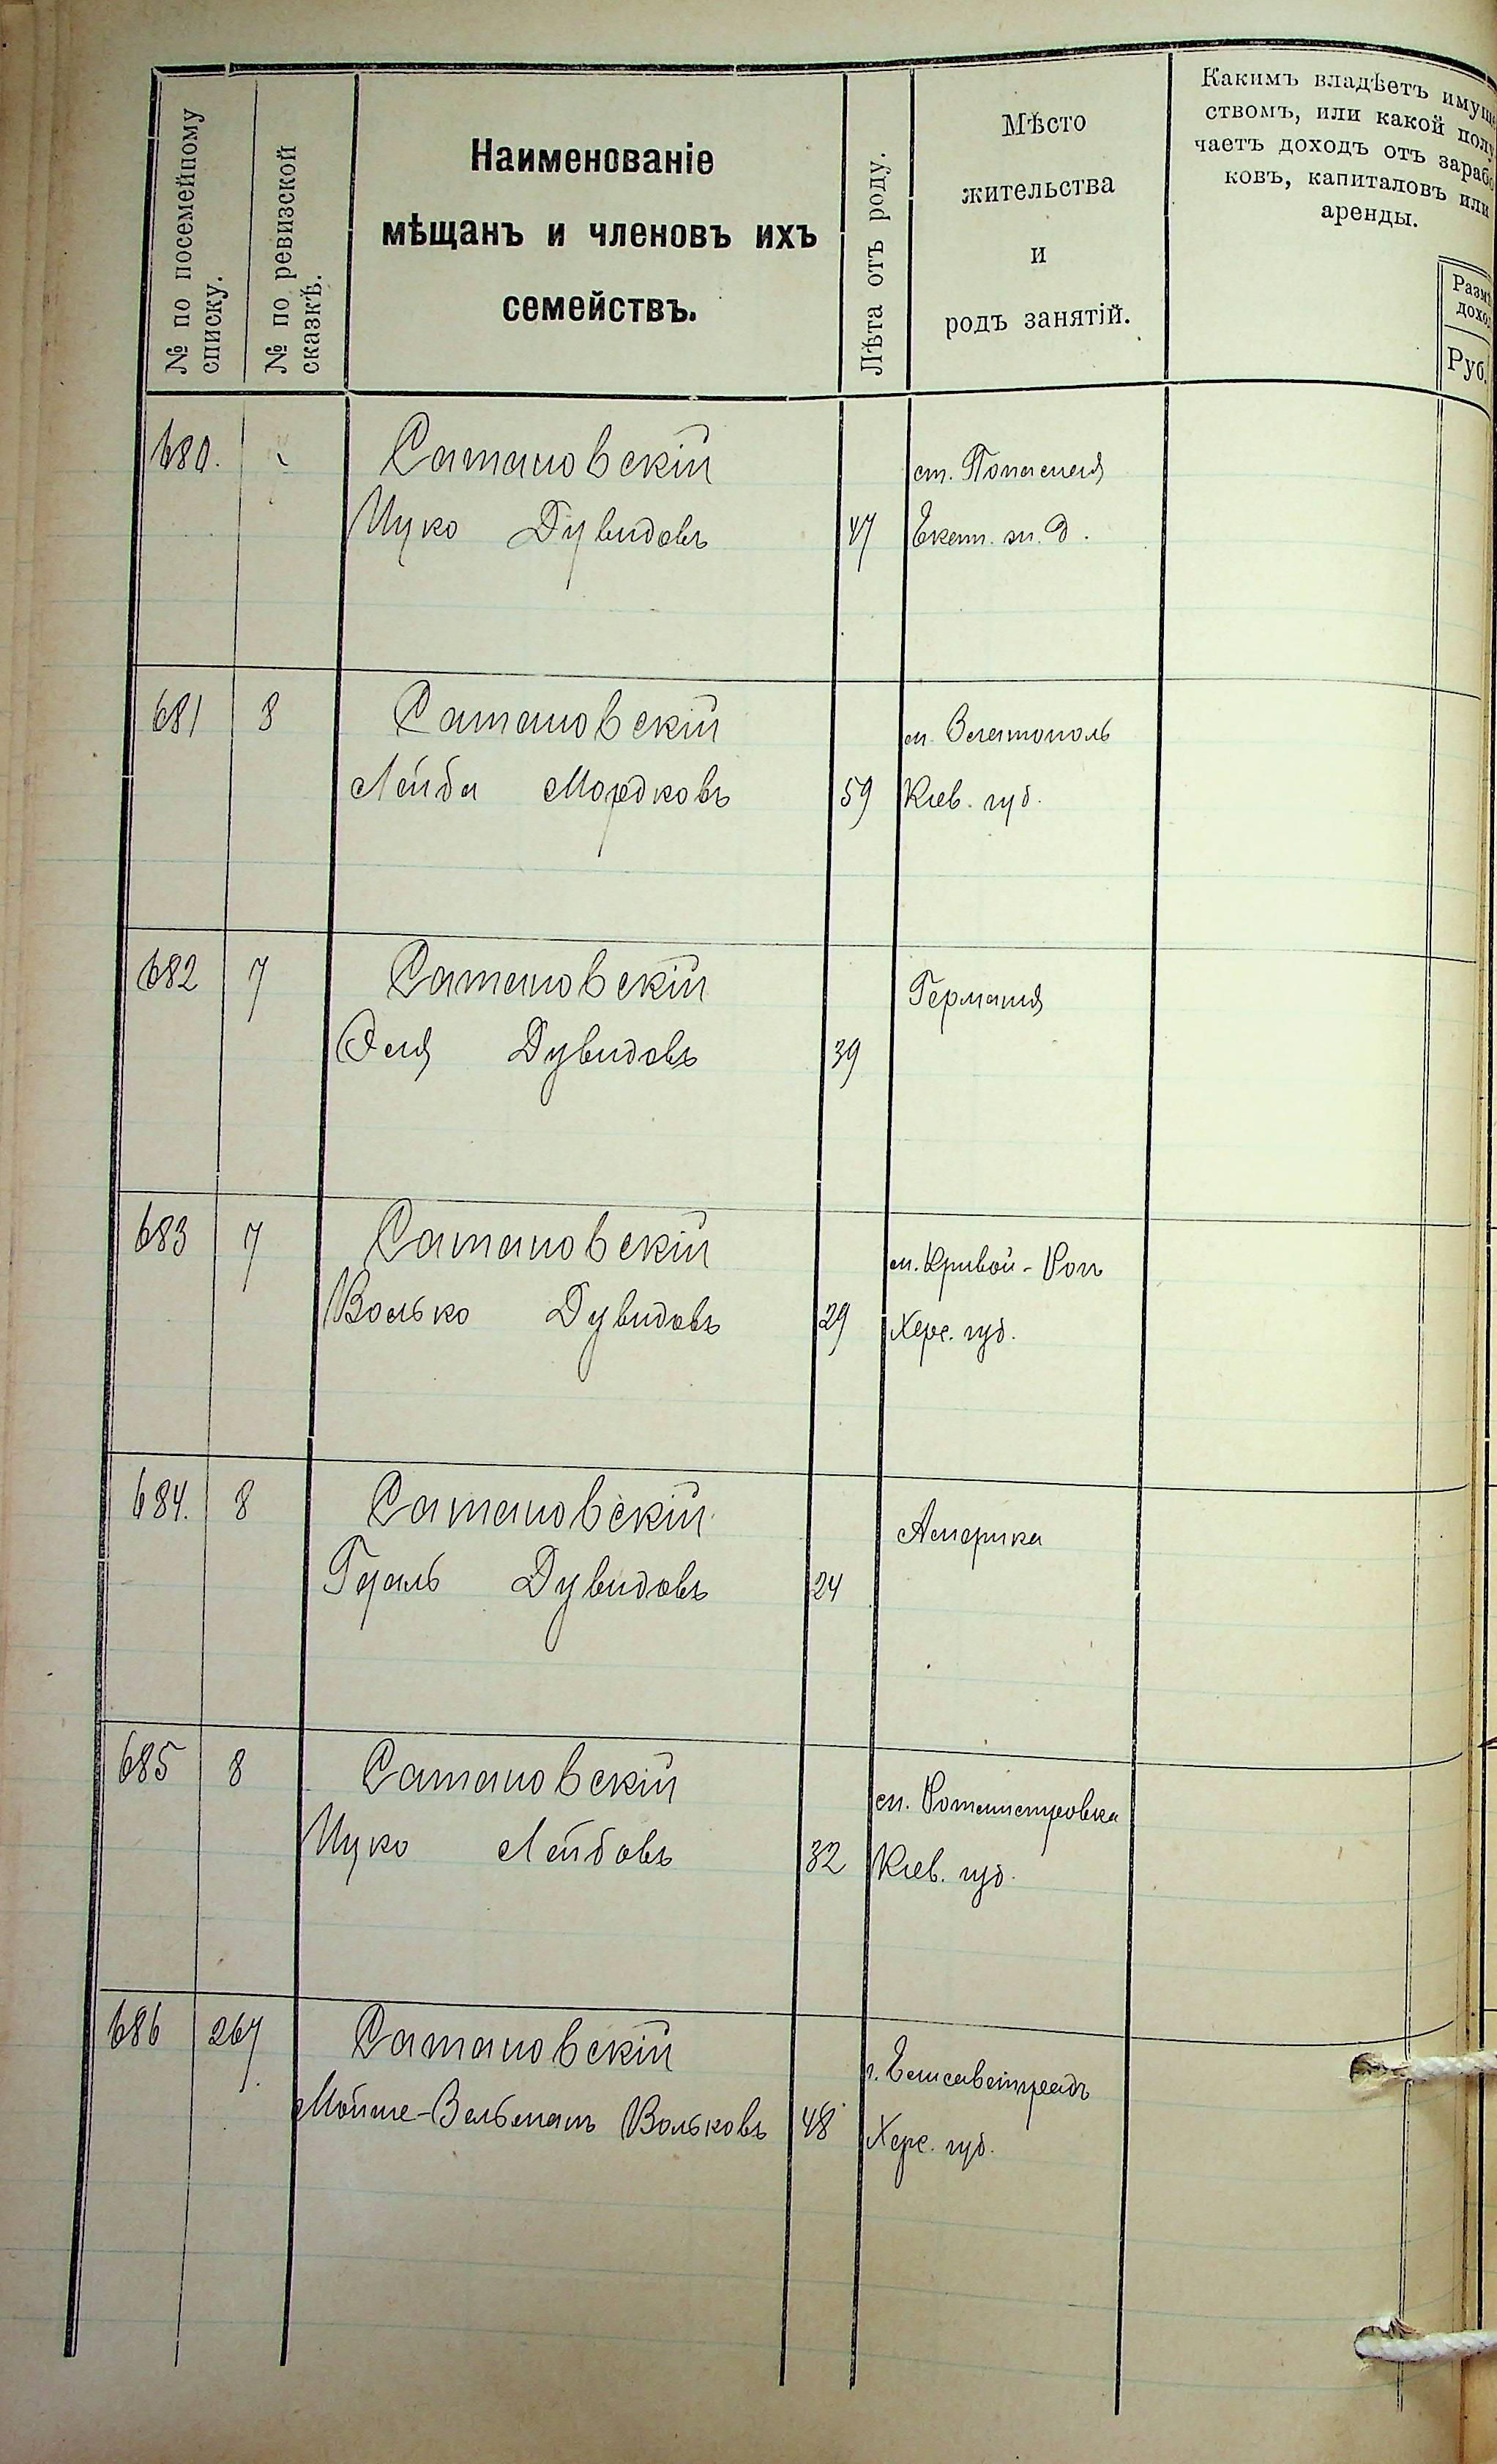 № по посемейному
списку.
№ по ревизской
сказкѣ.
Наименованіе
мѣщанъ и членовъ ихъ
семействъ.
Лѣта отъ роду.
Мѣсто
жительства
и
родъ занятій.
Какимъ владѣетъ имуще
ствомъ, или какой полу
чаетъ доходъ отъ зарабо
ковъ, капиталовъ или
аренды.
Размѣ
доход
Руб.
680. Сатановскій ст. Попасная
Ицко Дувидовъ 47 Екат. ж. д.
681 8 Сатановскій м. Златополь
Лейба Мордковъ 59 Кіев. губ.
682 7 Сатановскій Германія
Эля Дувидовъ 39
683 7 Сатановскій м. Кривой-Рогъ
Волько Дувидовъ 29 Херс. губ.
684. 8 Сатановскій Америка
Герль Дувидовъ 24
685 8 Сатановскій м. Ротмистровка
Ицко Лейбовъ 32 Кіев. губ.
686 267. Сатановскій г. Елисаветградъ
Мойше-Зельманъ Вольковъ 48 Херс. губ.